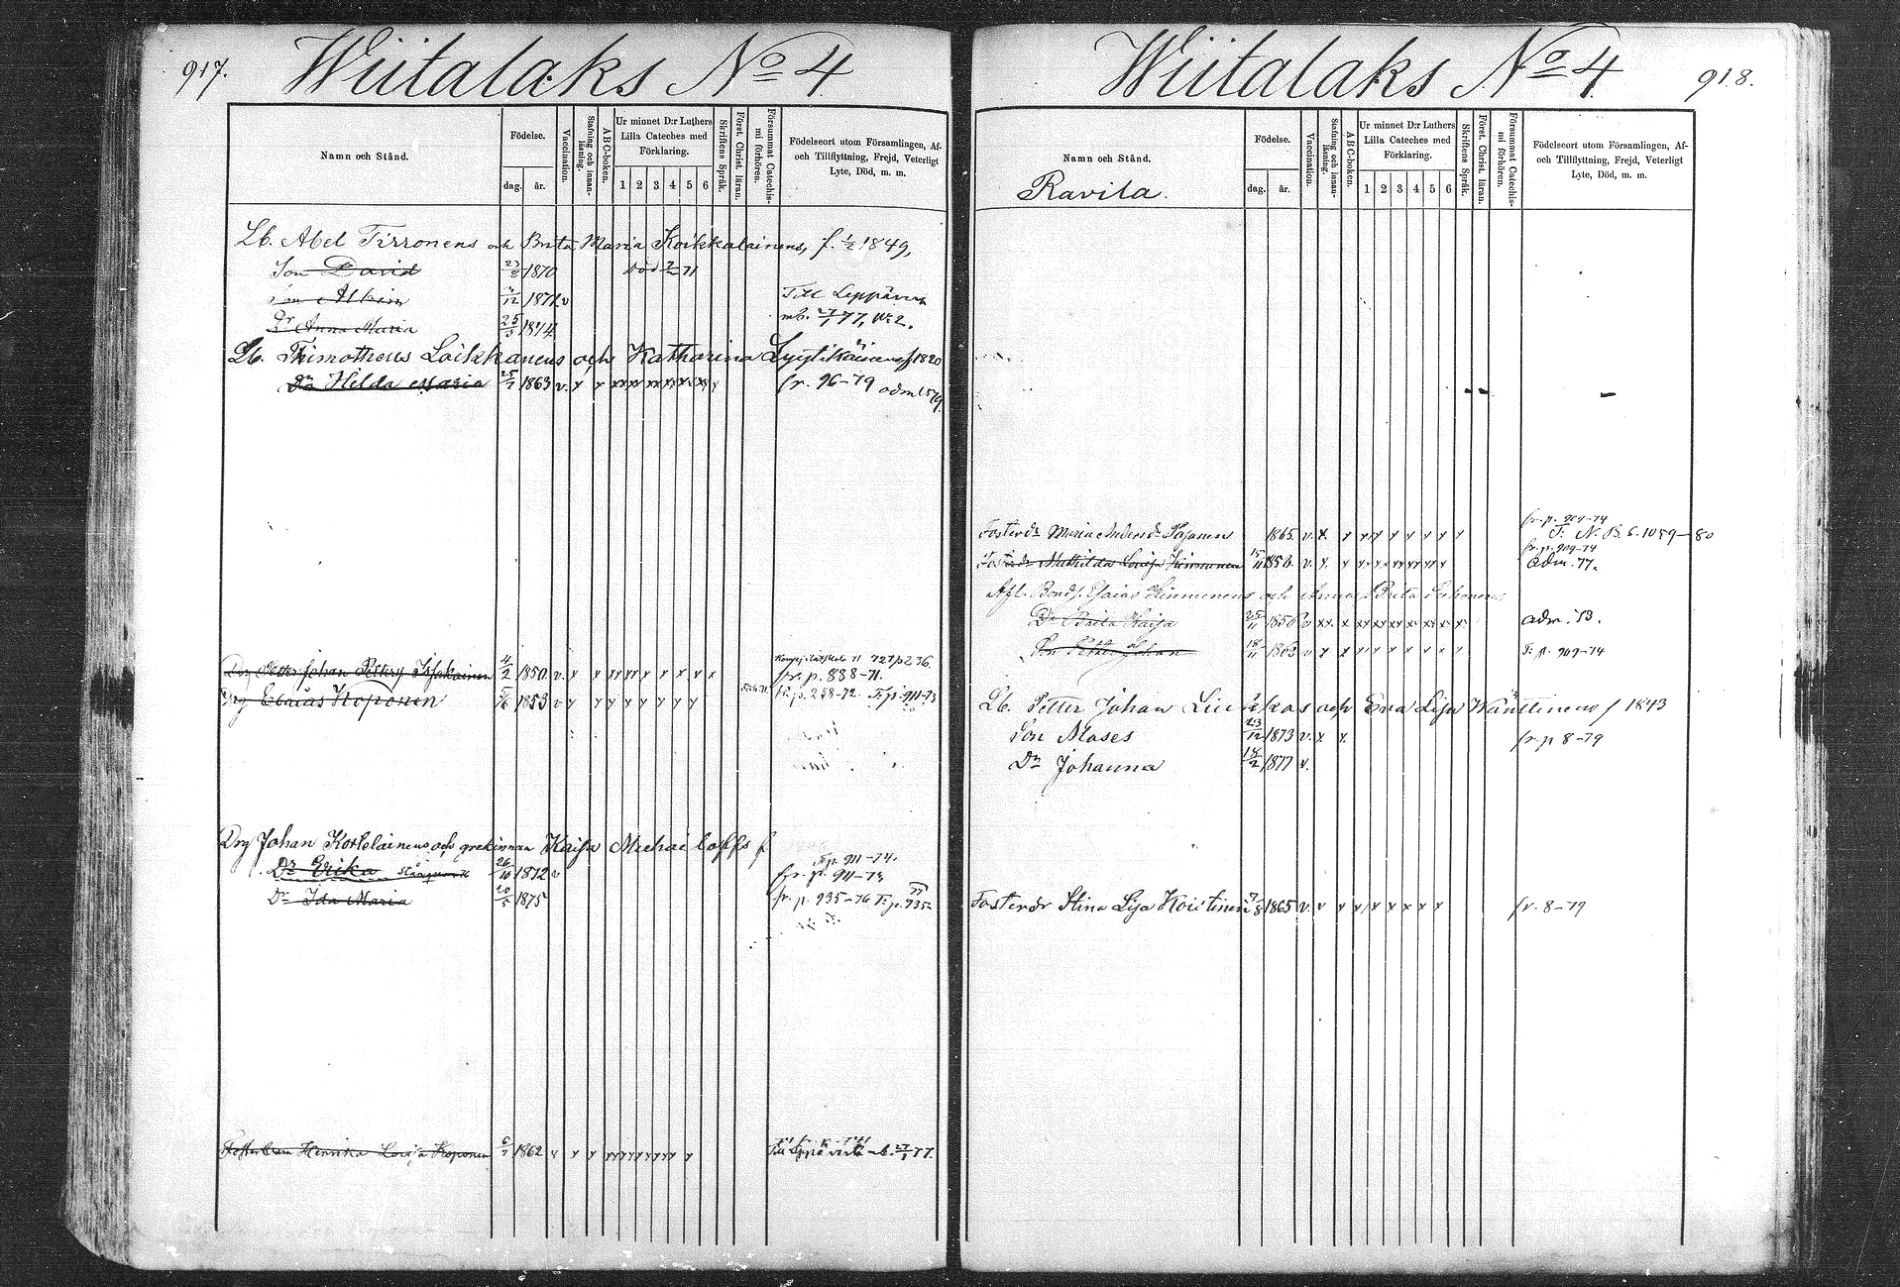 917.
Wiitalaks No 4
Namn och Stånd.
Födelse.
dag. år.
Vaccination.
Stafning och innanläsning.
ABC-boken.
Ur minnet D:r Luthers Lilla Cateches med Förklaring.
1 2 3 4 5 6
Skriftens Språk.
Först. Christ. läran.
Försummat Catechismi förhören.
Födelseort utom Församlingen, Af- och Tillflyttning, Frejd, Veterligt Lyte, Död, m. m.
Lb. Abel Tirronens och Brita Maria Koikkalainens, f. 1/2 1849,
Son David 23/8 1870 död 71
Son Albin /12 1871 v Till Leppävirta
Dr Anna Maria 25/3 1874 mb. 27/1 77, No 2.
Lb. Thimotheus Loikkanens och Katharina Lyytikäinens f 1820
Dr Hilda Maria 25/7 1863 v. x x xx xx xx xx xx xx x fr. 96-79 adm 1879.
Drg Petter Johan Petterss 4/2 1850 v. x x x x x x x x x 727 p 236
fr. p. 838-71.
Drg Esaias Koponen 5/6 1853 v x x x x x x x x p. 258-72. T. p. 911-73
Drg Johan Kortelainens och grekinnan Kaisa Michailoffs f
T. p. 911-74.
Dr Erika 26/10 1872 v fr. p. 911-73
Dr Ida Maria 20/5 1875 fr. p. 935-76 T. p. 935-77
Henrika Loisa Koponen 6/7 1862 v x x x x x x x x x x Till Leppävirta mb. 27/1 77.
918.
Wiitalaks No 4.
Namn och Stånd.
Ravila.
Födelse.
dag. år.
Vaccination.
Stafning och innanläsning.
ABC-boken.
Ur minnet D:r Luthers Lilla Cateches med Förklaring.
1 2 3 4 5 6
Skriftens Språk.
Först. Christ. läran.
Försummat Catechismi förhören.
Födelseort utom Församlingen, Af- och Tillflyttning, Frejd, Veterligt Lyte, Död, m. m.
fr. p. 909-74
Fosterdr Maria Andersdr 1865 v. x. x x x x x x x x T. N. B. S. 1059-80
fr. p. 909-74
Fosterdr Mathilda Lovisa Kinnunen 15/11 1856 v. x. x x x x x x x x adm. 77.
Afl. Bonds. Esaias Kinnunens och Anna Brita
Dr Brita Kaisa 25/11 1856 v xx x xx xx xx xx x x adm. 73.
Son Petter Johan 18/11 1862 v x x x x x x x x x T. p. 909-74
Lb. Petter Johan och Eva Lisa Wänttinens f 1843
Son Moses 23/12 1873 v. x x. fr. p 8-79
Dr Johanna 18/2 1877 v.
Fosterdr Stina Lisa Koistinen 7/8 1865 v. v x x x x x x x fr. 8-79